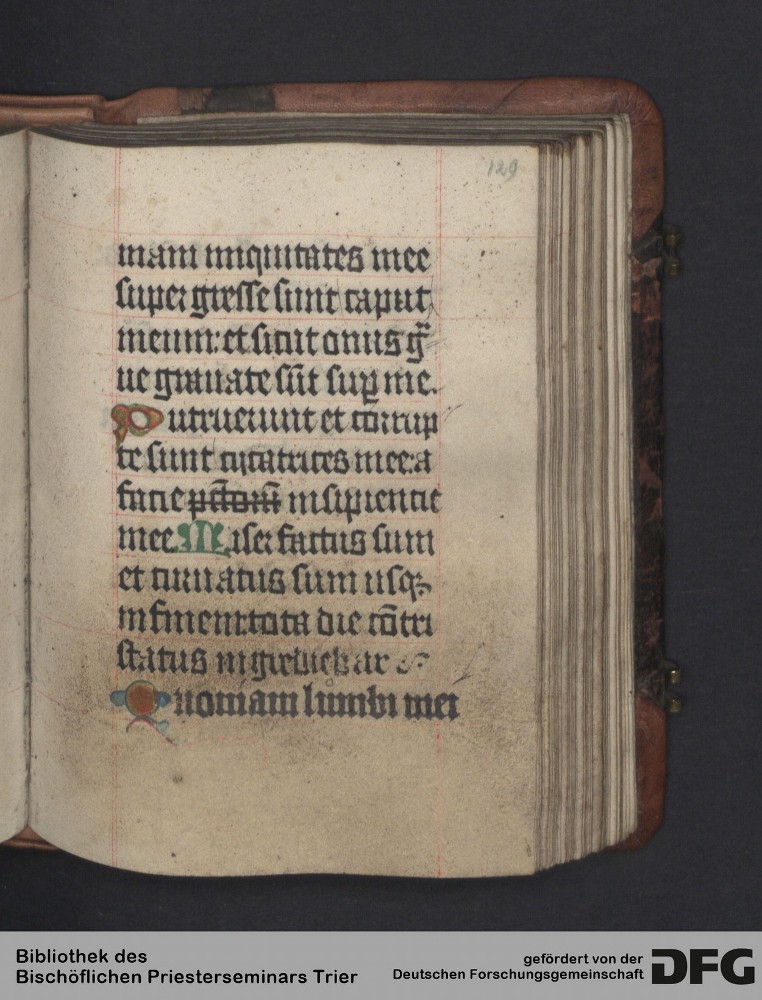 129
niam iniquitates mee
super gresse sunt caput
meum: et sicut onus g̃
ue grauate sūt sup̲ me.
Putruerunt et corrup
te sunt cycatrices mee: a
facie pctōm̄ insipientie
mee. Miser factus sum
et curuatus sum usq;
in finem: tota die cōtri
status ingrediebar
Quoniam lumbi mei
Bibliothek des
Bischöflichen Priesterseminars Trier
gefördert von der
Deutschen Forschungsgemeinschaft
DFG